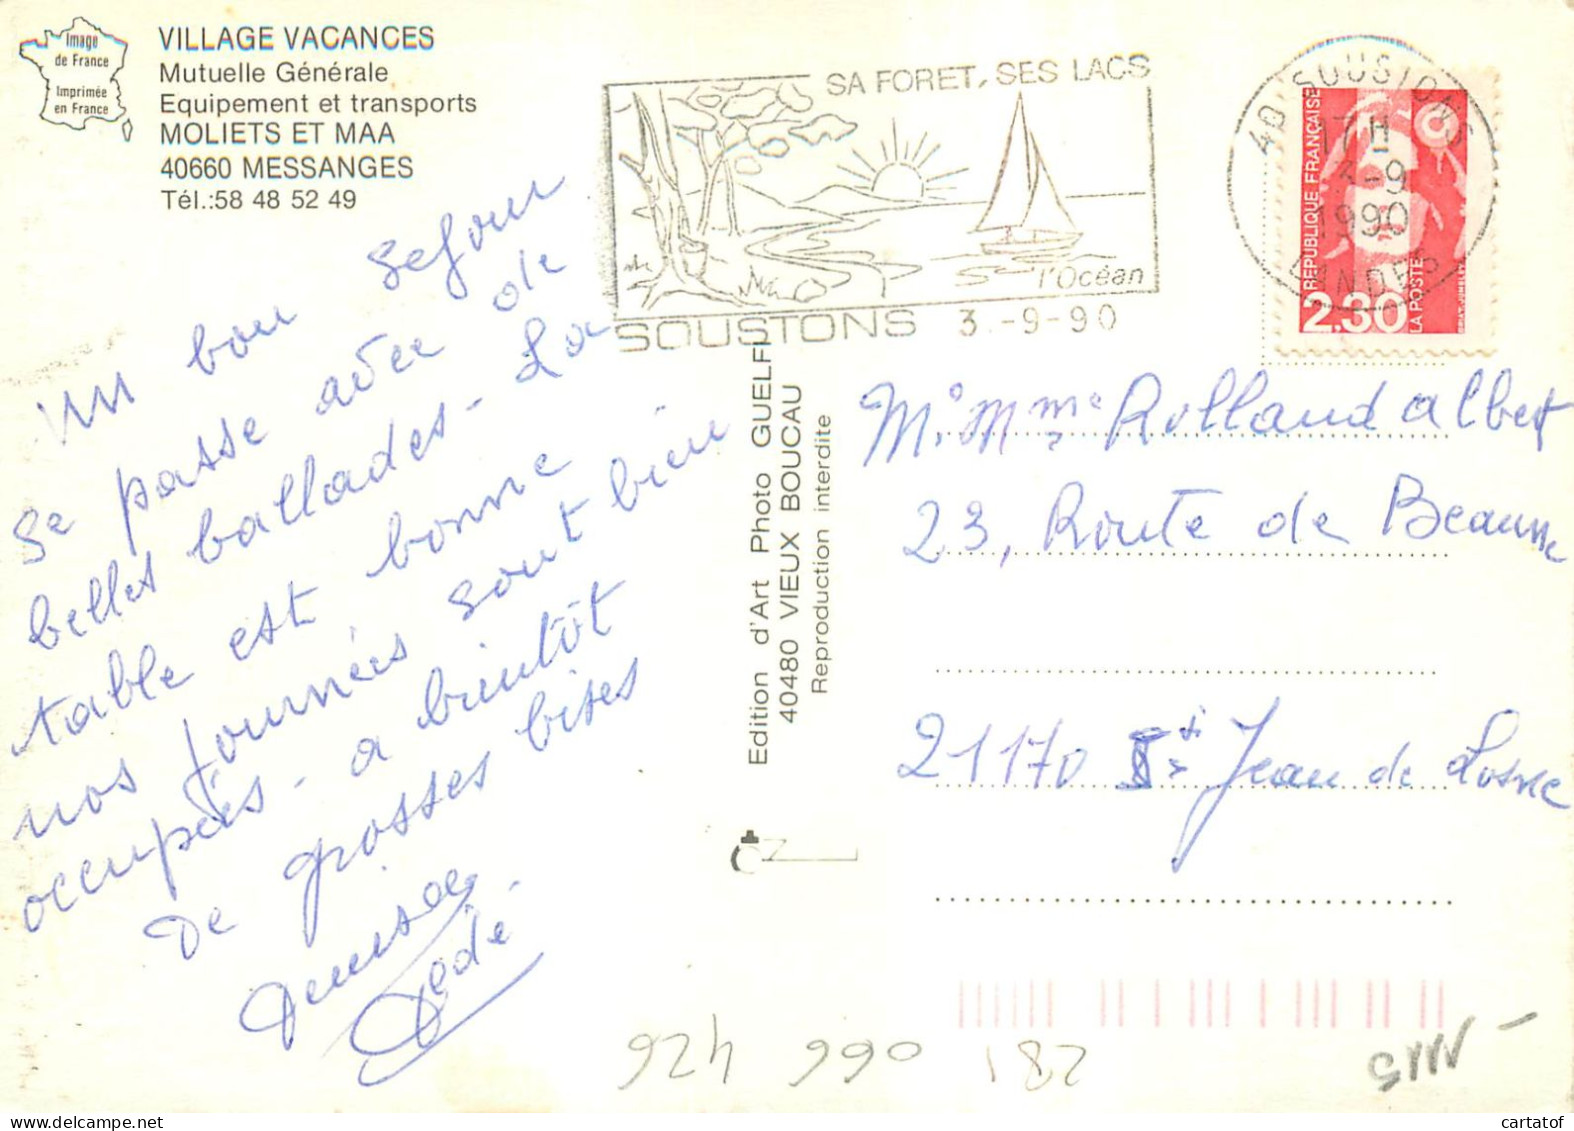 Image
de France
Imprimée
en France
VILLAGE VACANCES
Mutuelle Générale
Equipement et transports
MOLIETS ET MAA
40660 MESSANGES
Tél.:58 48 52 49
SA FORET, SES LACS
l'Océan
SOUSTONS 3.-9-90
40 SOUSTONS
17H
3-9
1990
LANDES
REPUBLIQUE FRANÇAISE
2,30
LA POSTE
Un bon sejour
se passe avec de
belles ballades - La
table est bonne
nos journées sont bien
occupées - a bientôt
De grosses bises
Denise
Dédé.
Edition d'Art Photo GUELFI
40480 VIEUX BOUCAU
Reproduction interdite
Mr Mme Rolland Albert
23, Route de Beaune
21170 St Jean de Losne
426 066 281
cartatof